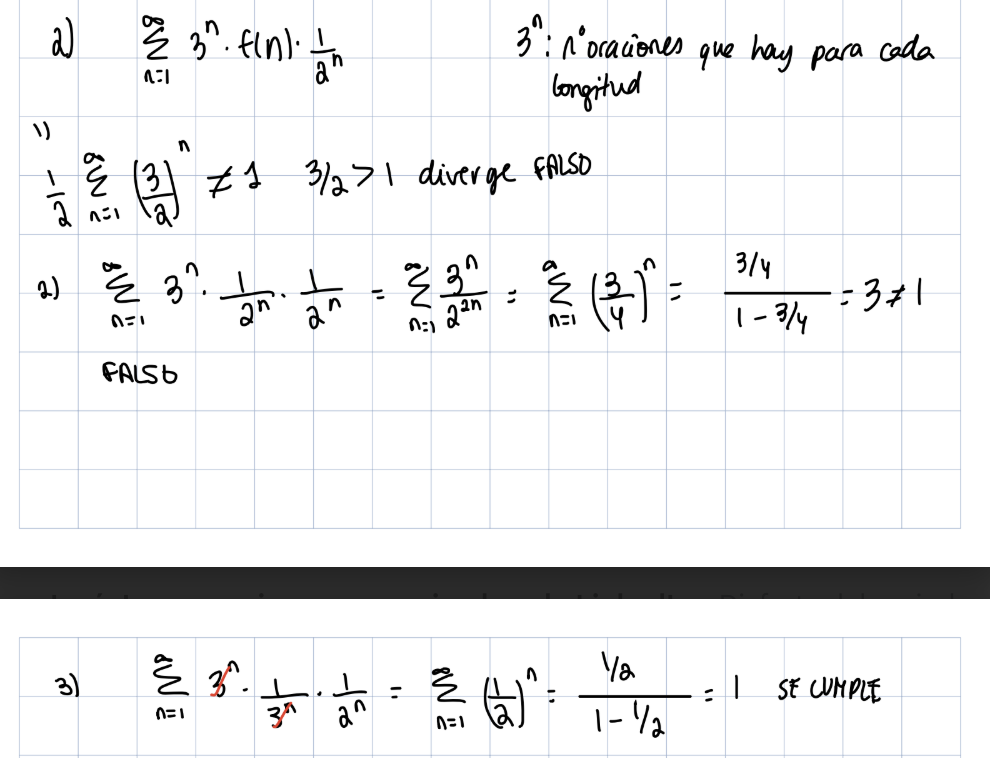 2) ∞ Σ n=1 3^n · f(n) · 1/2^n 3^n : nº oraciones que hay para cada
longitud
1)
1/2 ∞ Σ n=1 (3/2)^n ≠ 1 3/2 > 1 diverge FALSO
2) ∞ Σ n=1 3^n · 1/2^n · 1/2^n = ∞ Σ n=1 3^n/2^2n = ∞ Σ n=1 (3/4)^n = 3/4 / 1 - 3/4 = 3 ≠ 1
FALSO
3) ∞ Σ n=1 3^n · 1/3^n · 1/2^n = ∞ Σ n=1 (1/2)^n = 1/2 / 1 - 1/2 = 1 SE CUMPLE